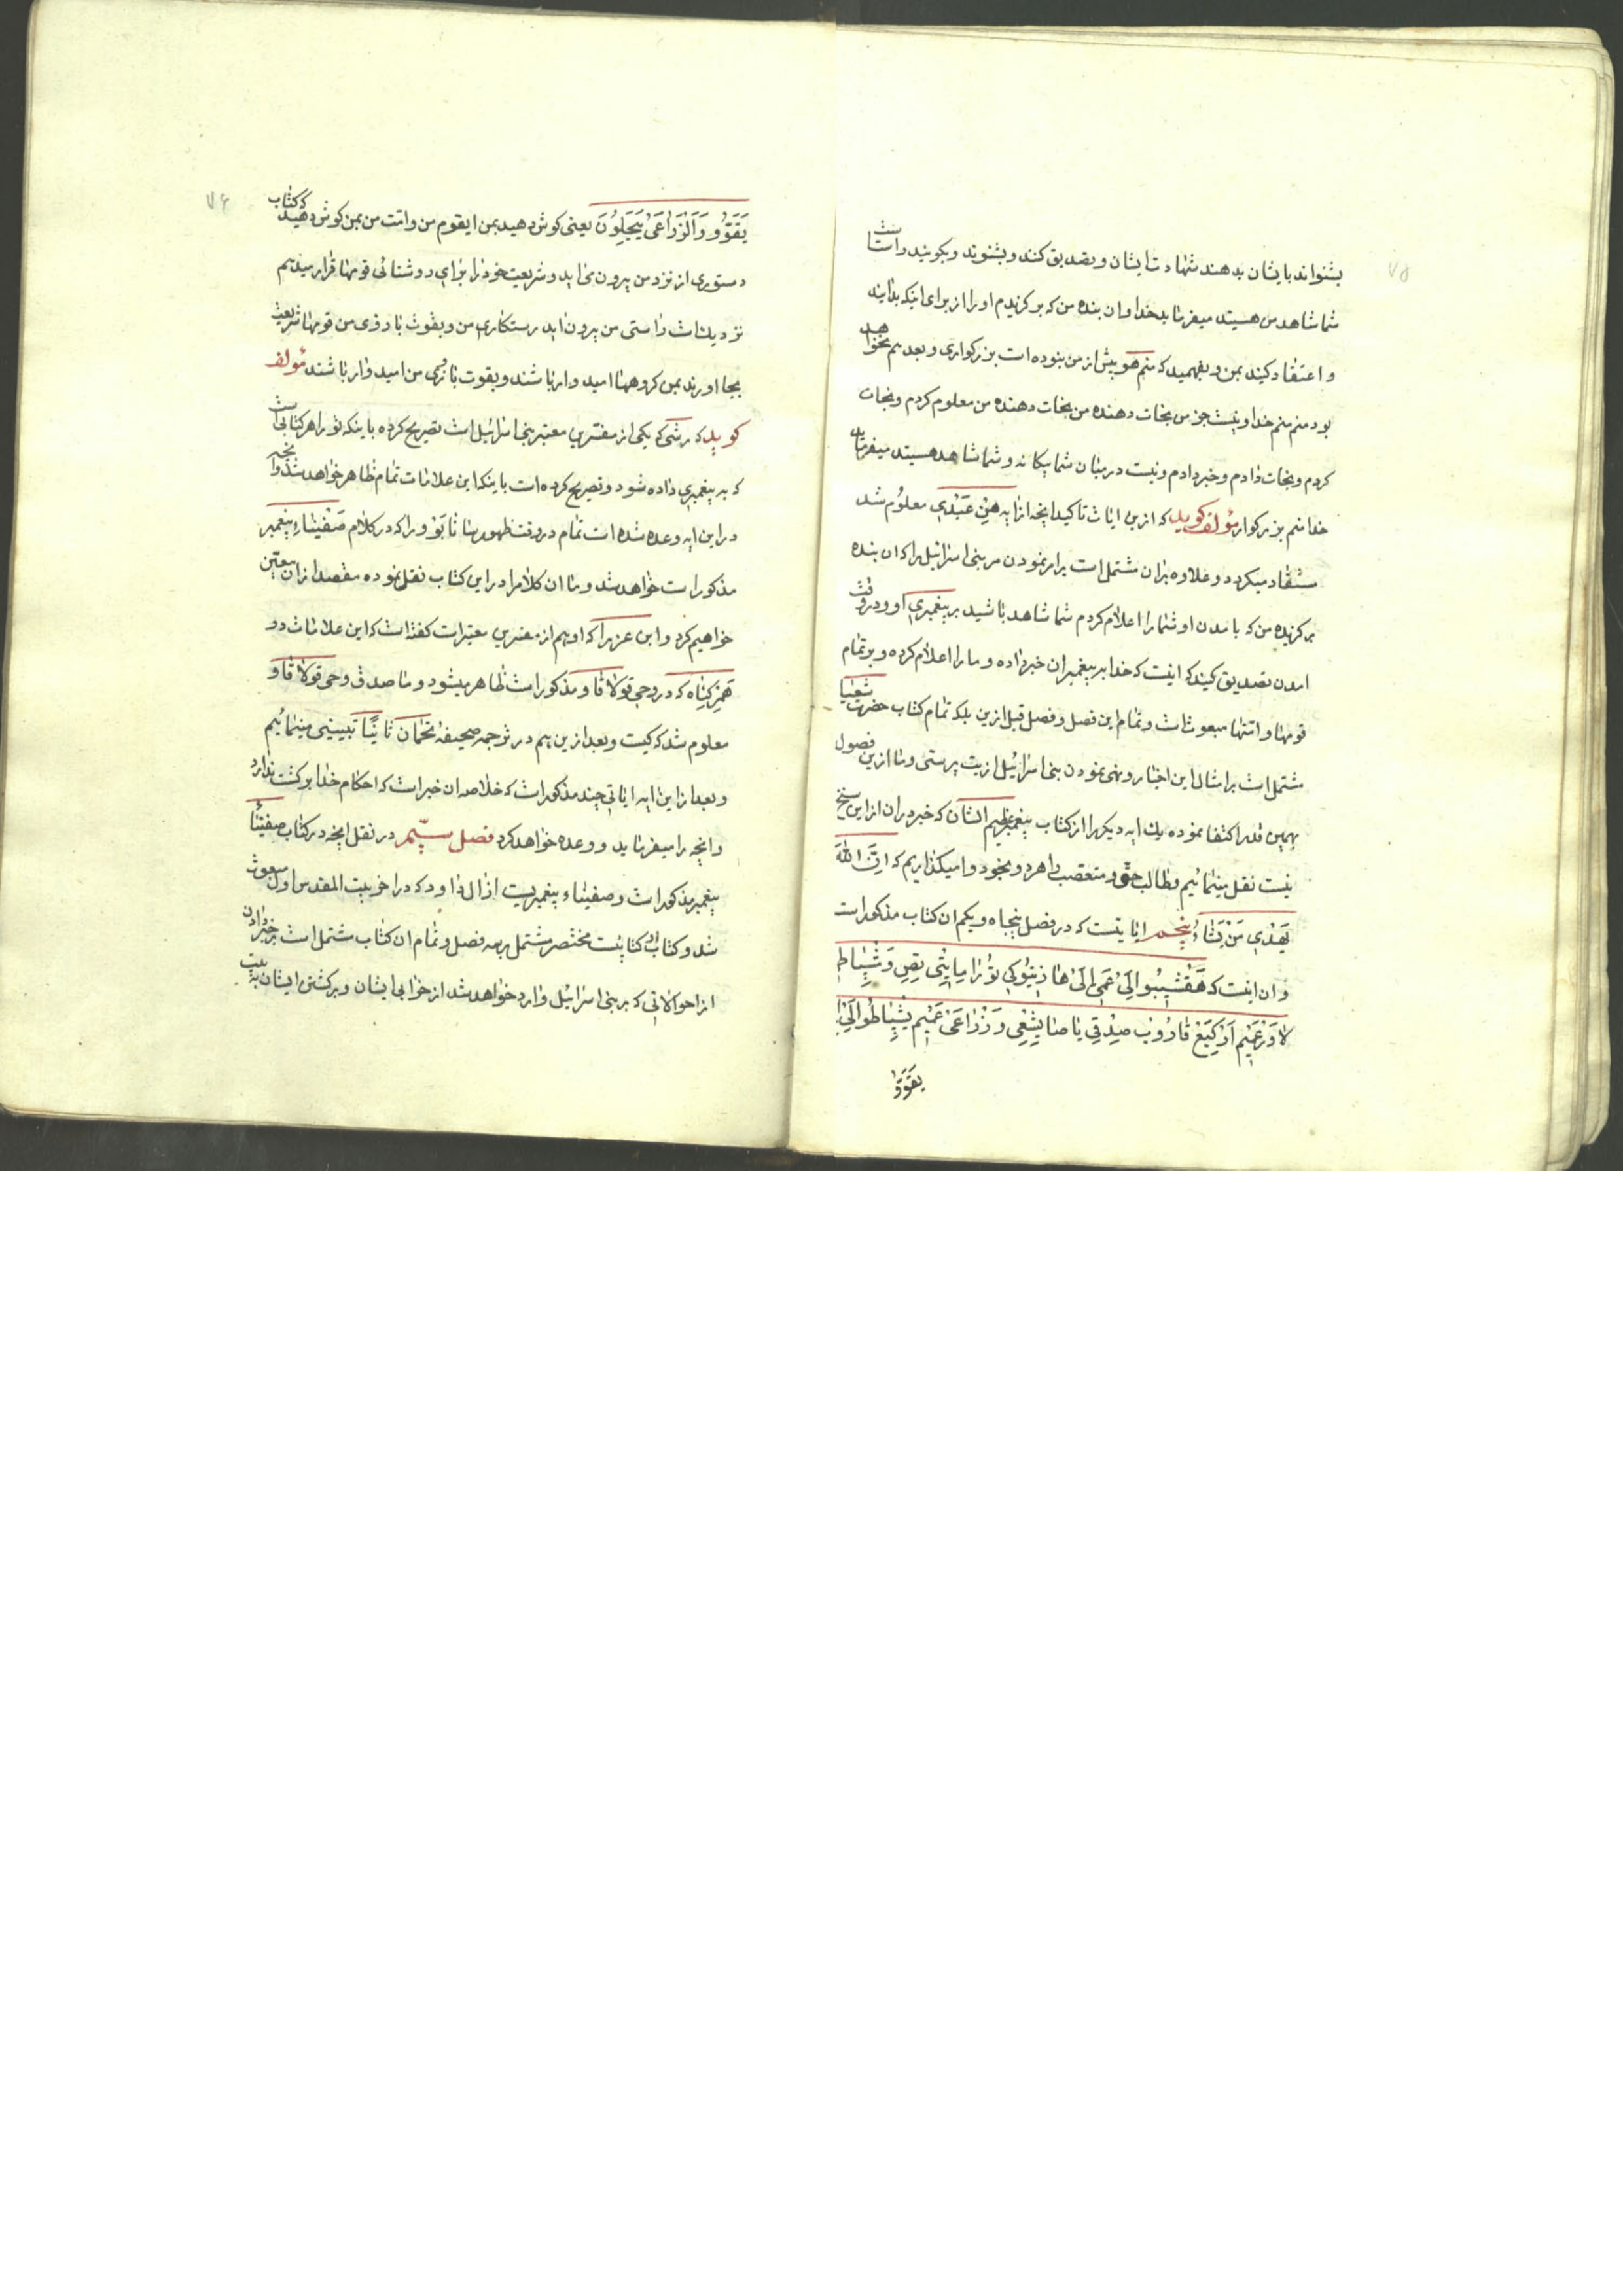 ۷۵
بشنواند بایشان بدهند شهادت ایشان و تصدیق کنند و بشنوند و بکویند راست است
شما شاهد من هستید میفرماید خدا و ان بنده من که برکزیدم او را از برای اینکه بدانید
و اعتقاد کنید بمن و بفهمید که منم هو پیش از من نبوده است بزرکواری و بعد هم نخواهد
بود منم منم خدا و نیست جز من نجات دهنده من نجات دهنده من معلوم کردم و نجات
کردم و نجات دادم و خبر دادم و نیست در میان شما بیکانه و شما شاهد هستید میفرماید
خدا منم بزرکوار مؤلف کوید که ازین ایات تاکید انچه از ایه هین عبدی معلوم شد
مستفاد میکردد و علاوه بران مشتمل است بر امر نمودن مر بنی اسرائیل را که ان بنده
برکزیده من که بامدن او شما را اعلام کردم شما شاهد باشید بر پیغمبری او و در وقت
امدن تصدیق کنید که اینست که خدا بر پیغمبران خبر داده و ما را اعلام کرده و بر تمام
قومها و امتها مبعوث است و تمام این فصل و فصل قبل ازین بلکه تمام کتاب حضرت شعیا
مشتمل است بر امثال این اخبار و نهی نمودن بنی اسرائیل از بت پرستی و ما ازین فصول
بهمین قدر اکتفا نموده یک ایه دیکر را از کتاب پیغمبر عظیم الشان که خبر در ان از این سنخ
نیست نقل مینمائیم و طالب حق و متعصب را هر دو بخود وا میکذاریم که ان الله
یهدی من یشاء پنجم ایاتیست که در فصل پنجاه و یکم ان کتاب مذکور است
و ان اینست که هقشیبو الی عمی
لا ورغیم
یقوو
۷۶
یقوو یعنی کوش دهید بمن ایقوم من و امت من بمن کوش دهید که کتاب
دستوری از نزد من بیرون می اید و شریعت خود را برای روشنائی قومها قرار میدهم
نزدیک است راستی من بیرون اید رستکاری من و بقوت بازوی من قومها شریعت
بجا اورند بمن کروهها امیدوار باشند و بقوت بازوی من امیدوار باشند مؤلف
کوید که رشی که یکی از مفسرین معتبر بنی اسرائیل است تصریح کرده باینکه تورا هر کتابی است
که به پیغمبری داده شود و تصریح کرده است باینکه این علامات تمام ظاهر خواهد شد و انچه
در این ایه وعده شده است تمام در وقت ظهور که در کلام صفنیاء پیغمبر
مذکور است خواهد شد و ما ان کلام را در این کتاب نقل نموده مقصد از ان معین
خواهیم کرد و ابن عزرا که او هم از مفسرین معتبر است کفته است که این علامات در
که در وحی مذکور است ظاهر میشود و ما صدق وحی
معلوم شد که کیست و بعد ازین هم در ترجمه صحیفه نحمان ثانیا مینمائیم
و بعد از این ایه ایاتی چند مذکور است که خلاصه ان خبر است که احکام خدا برکشت ندارد
و انچه را میفرماید و وعده خواهد کرد فصل سیم در نقل انچه در کتاب صفنیاء
پیغمبر مذکور است و صفنیاء پیغمبریست از ال داود که در اخر بیت المقدس اول مبعوث
شد و کتاب او کتابیست مختصر مشتمل بر سه فصل و تمام ان کتاب مشتمل است بر خبر دادن
از احوالاتی که بر بنی اسرائیل وارد خواهد شد از خرابی ایشان و برکشتن ایشان به بیت